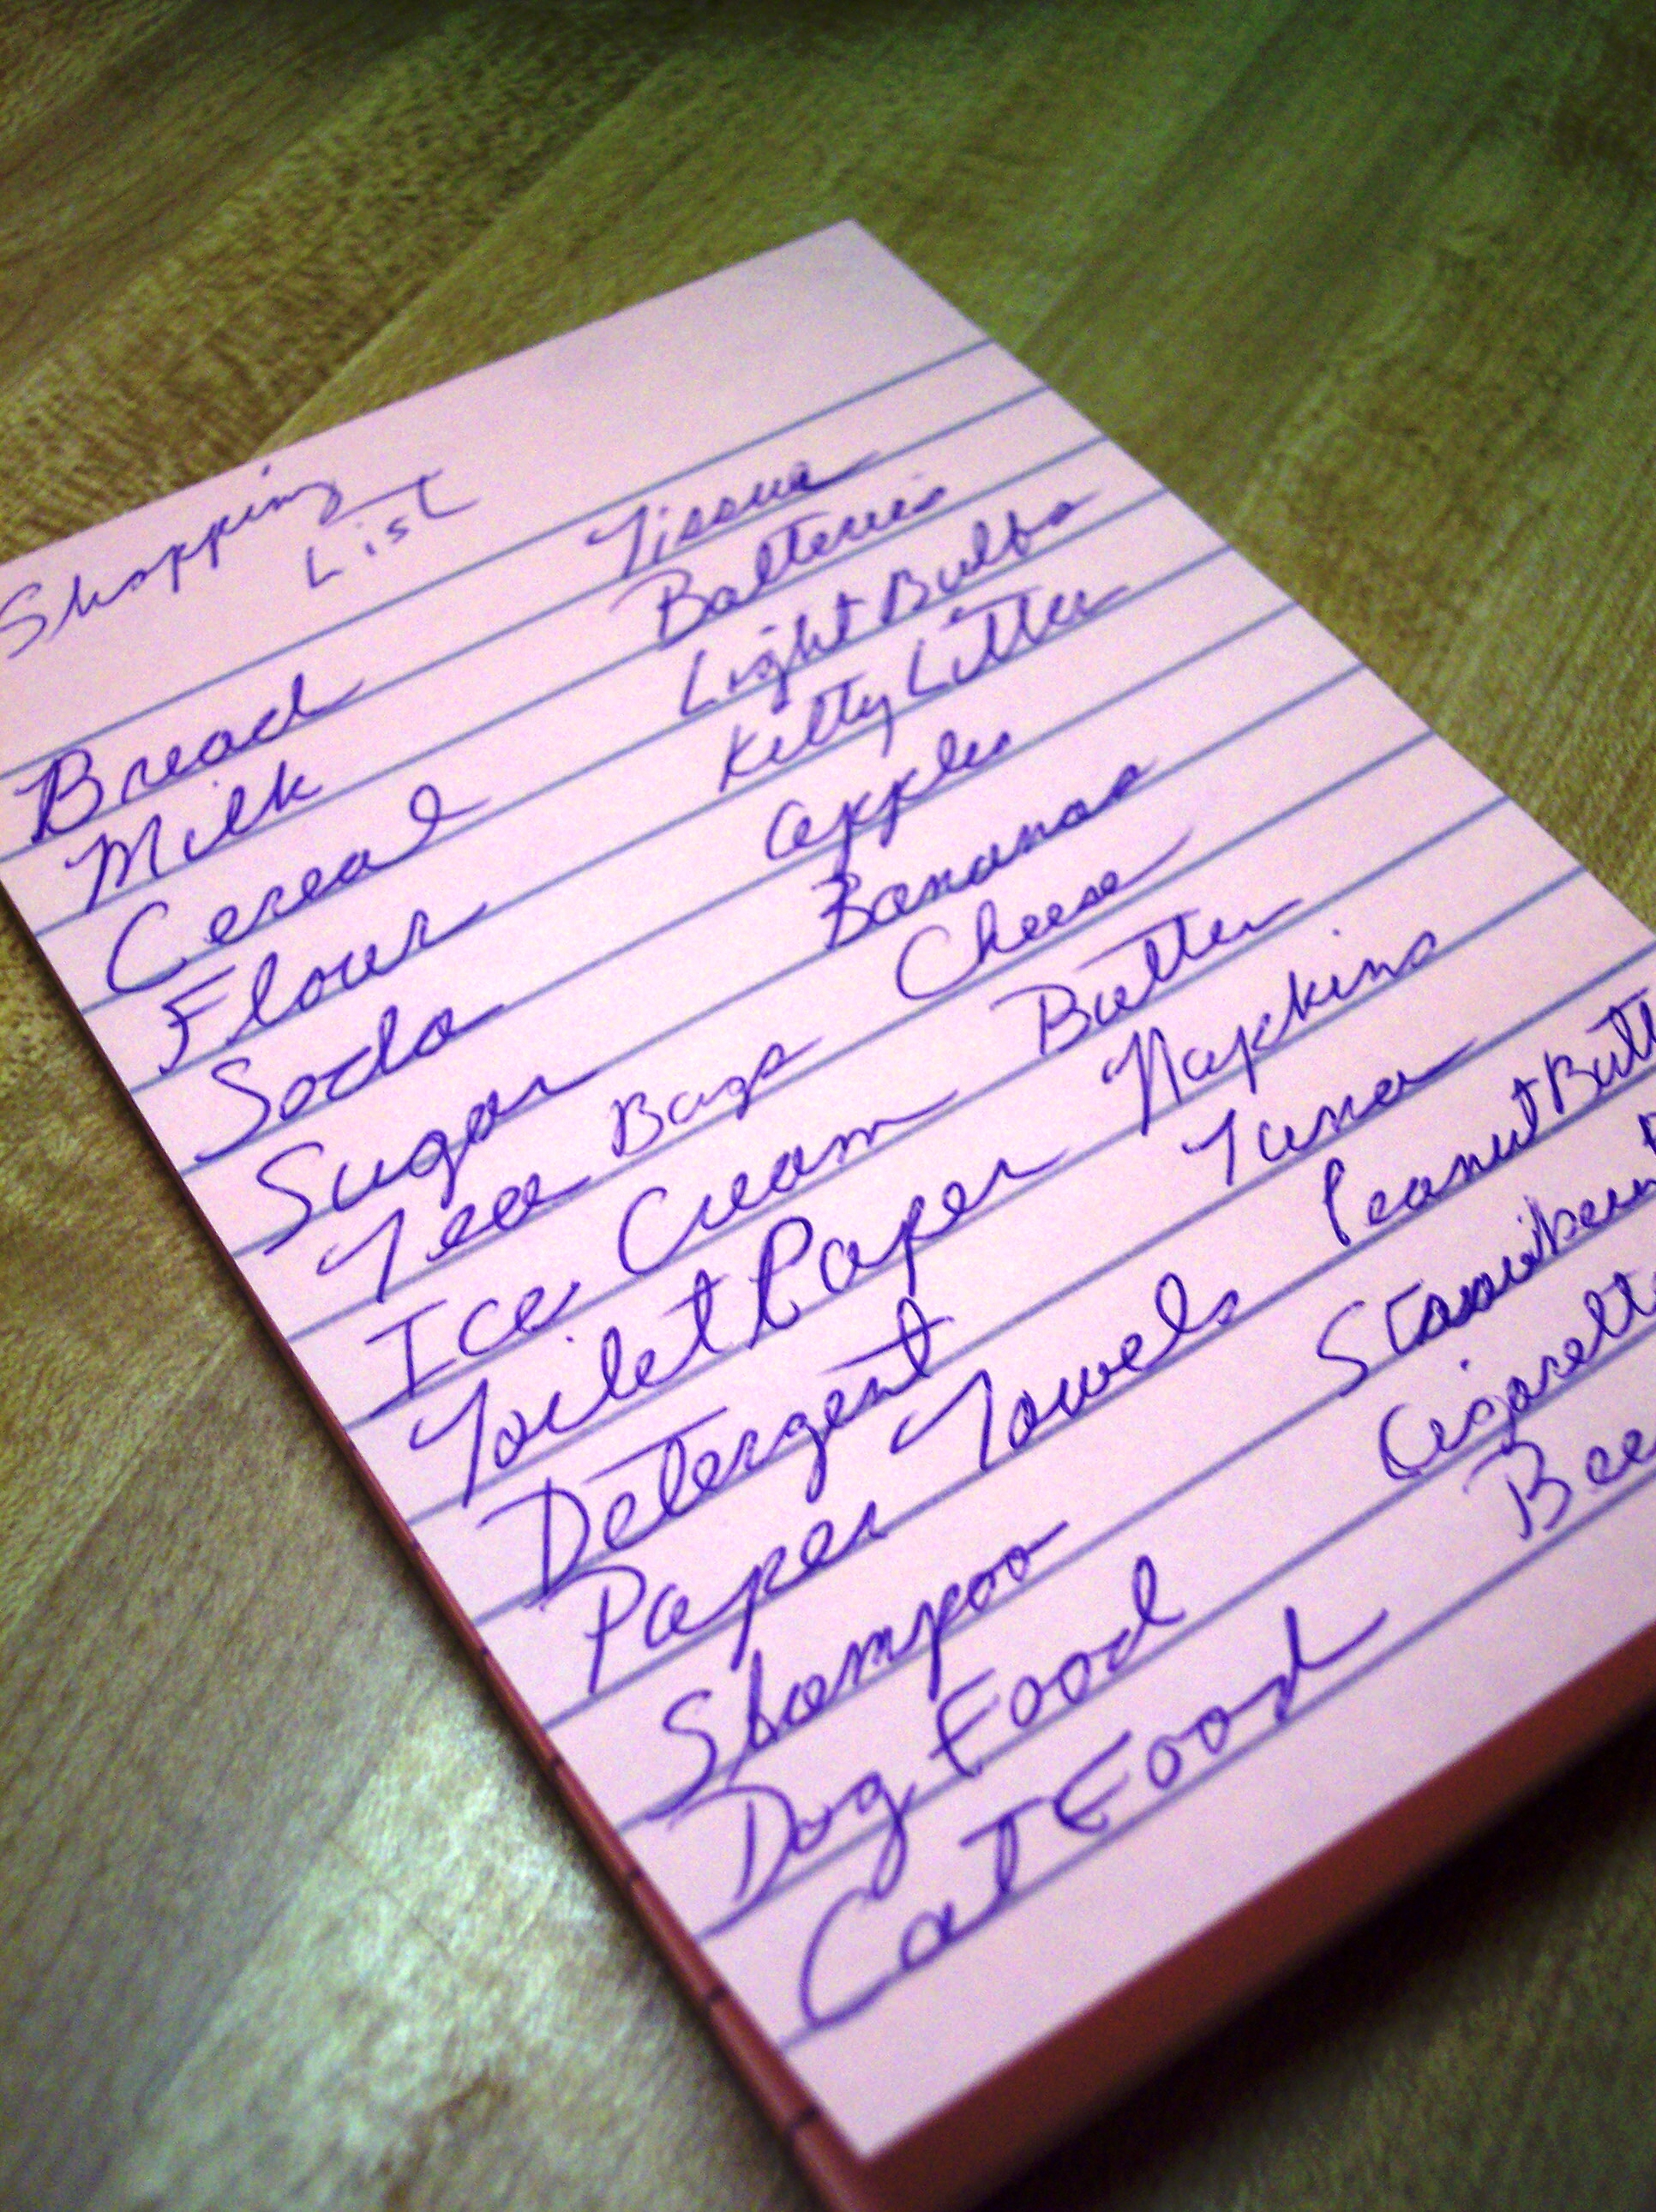 Shopping
List
Bread
Milk
Cereal
Flour
Soda
Sugar
Tea Bags
Ice Cream
Toilet Paper
Detergent
Paper Towels
Shampoo
Dog Food
Cat Food
Tissue
Batteries
Light Bulbs
Kitty Litter
apples
Bananas
Cheese
Butter
Napkins
Tuna
Peanut Butt
Cigarett
Bee